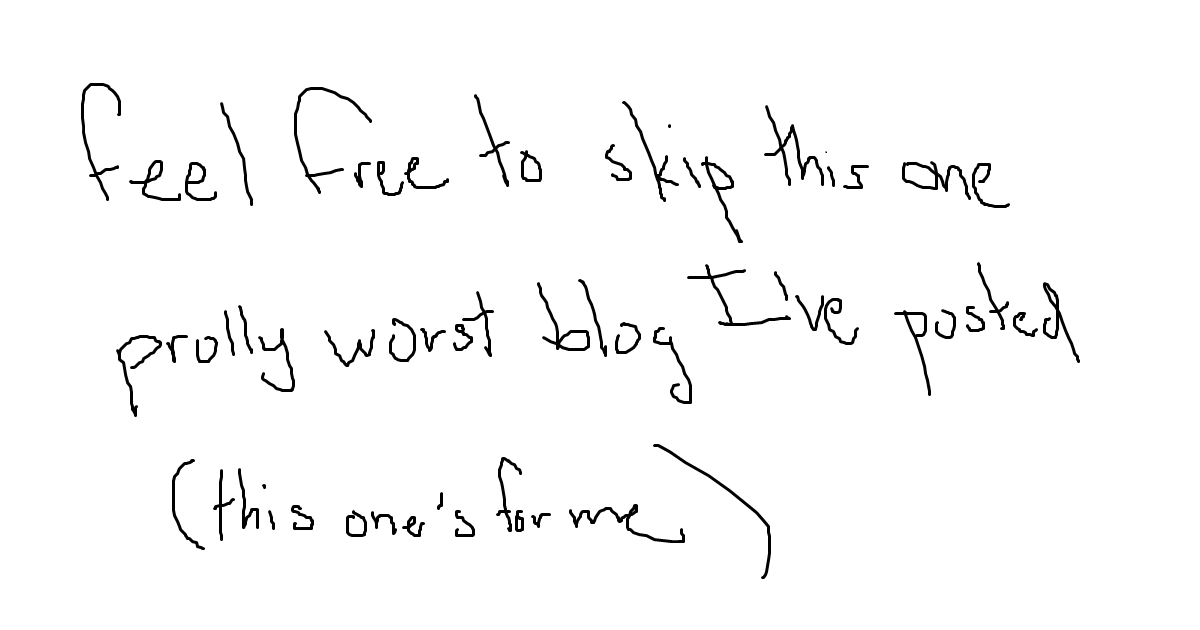 feel free to skip this one
prolly worst blog I've posted
(this one's for me)